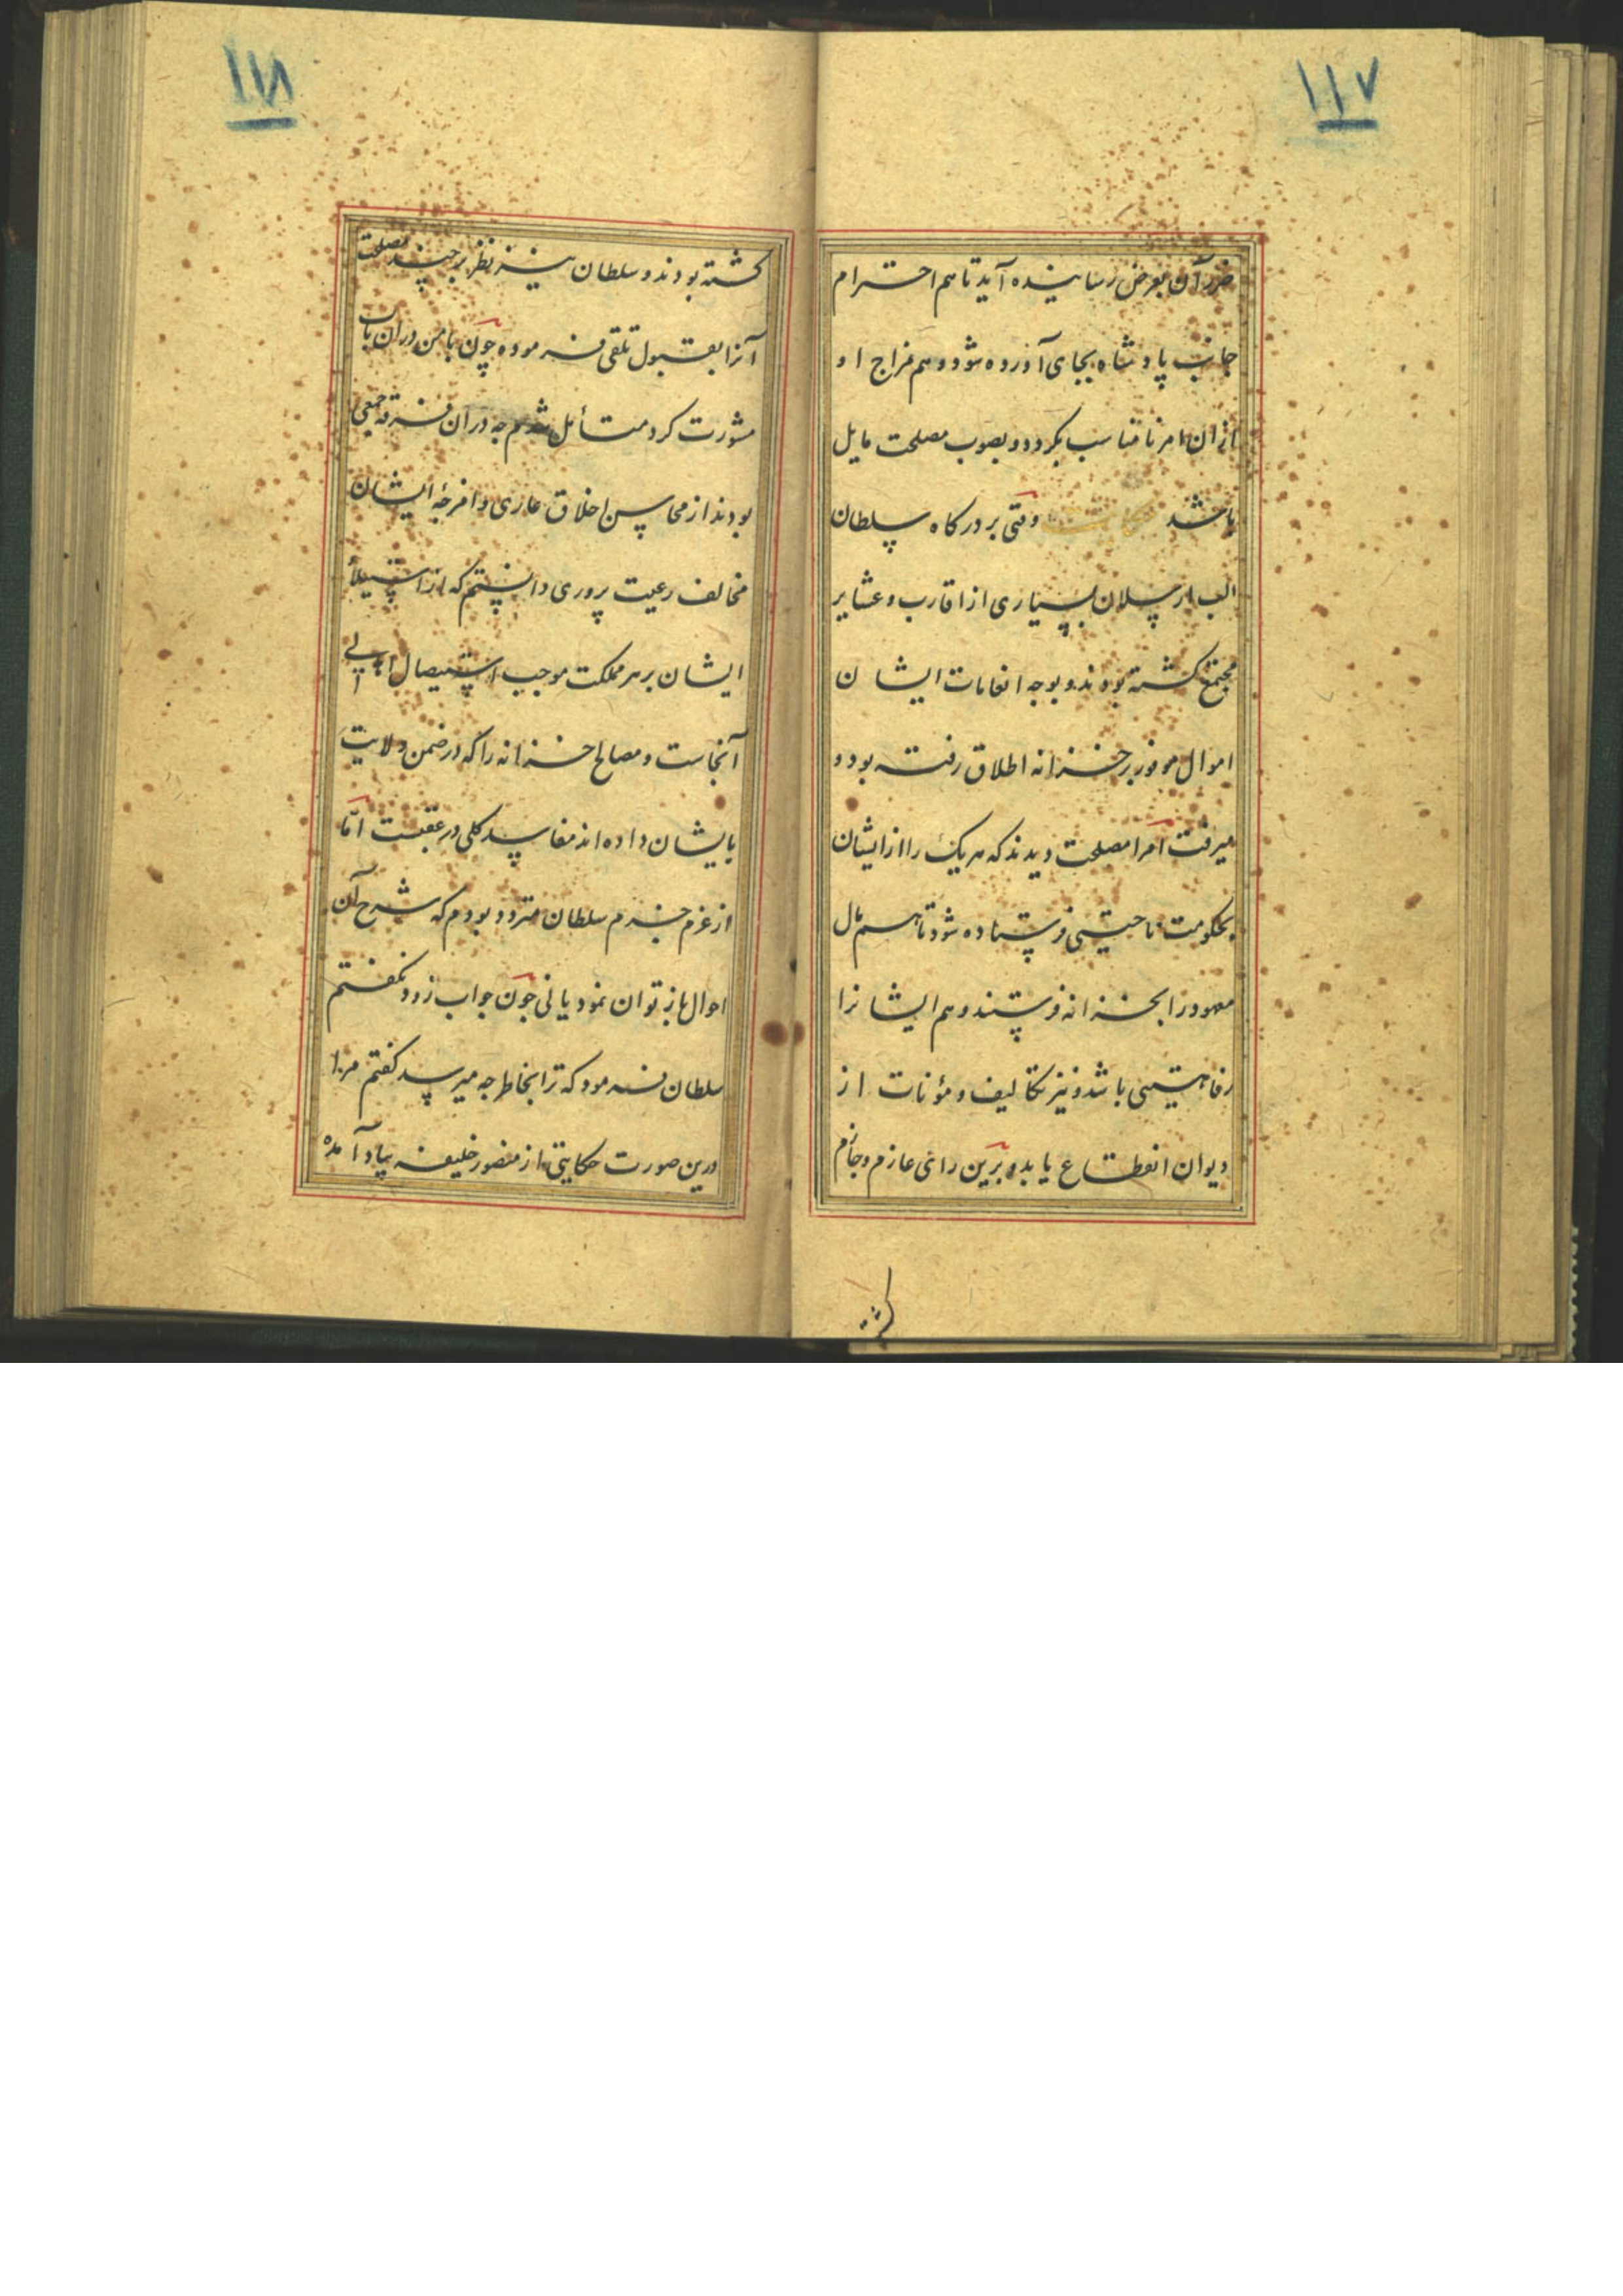 ۱۱۷
ضرر آن بعرض رسانیده آید تا هم احترام
جانب پادشاه بجای آورده شود و هم مزاج او
ازان امر نامناسب بگردد و بصوب مصلحت مایل
باشد حکایت وقتی بر درکاه سلطان
الب ارسلان بسیاری از اقارب و عشایر
مجتمع کشته بودند و بوجه انعامات ایشان
اموال موفور بر خزانه اطلاق رفته بود و
میرفت امرا مصلحت دیدند که هر یک را از ایشان
بحکومت ناحیتی فرستاده شود تا هم مال
معهود را بخزانه فرستند و هم ایشانرا
رفاهیتی باشد و نیز تکالیف و مؤنات از
دیوان انقطاع یابد و برین رای عازم و جازم
کشته
۱۱۸
کشته بودند و سلطان نیز نظر بر چند مصلحت
آنرا بقبول تلقی فرموده چون با من دران باب
مشورت کرد متأمل شدم چه دران فرقه جمعی
بودند از محاسن اخلاق عاری و امزجهٔ ایشان
مخالف رعیت پروری دانستم که از استیلاء
ایشان بر هر مملکت موجب استیصال اهالی
آنجاست و مصالح خزانه را که در ضمن ولایت
بایشان داده اند مفاسد کلی در عقبست امّا
از عزم جزم سلطان متردد بودم که شرح آن
احوال باز توان نمود یا نی چون جواب زود نکفتم
سلطان فرمود که ترا بخاطر چه میرسد کفتم مرا
درین صورت حکایتی از منصور خلیفه بیاد آمده